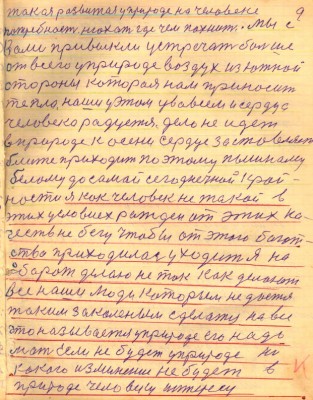 9
такая развитая у природе на человеке
потребность нюхат где чем пахнит. Мы с
Вами привыкли устречат больше
от всего у природе воздух из южной
стороны которая нам приносит
тепло, наши у этом убавсем и сердца
человека радуется, дело не идеть
в природе к осени сердце заставляеть
ближе приходит поэтому
белому до самой сегоднечной край
ности я как человек не такой в
этих условиях рожден от этих ка
честв не бегу чтобы от этого богат
ства приходилас уходит я на
оборот делаю не так как делають
все наши люди которым не дается
таким закаленым сделату на все
это называется у природе его надь
мат если не будет у природе ни
какого изминение не будет в
природе человеку интересу